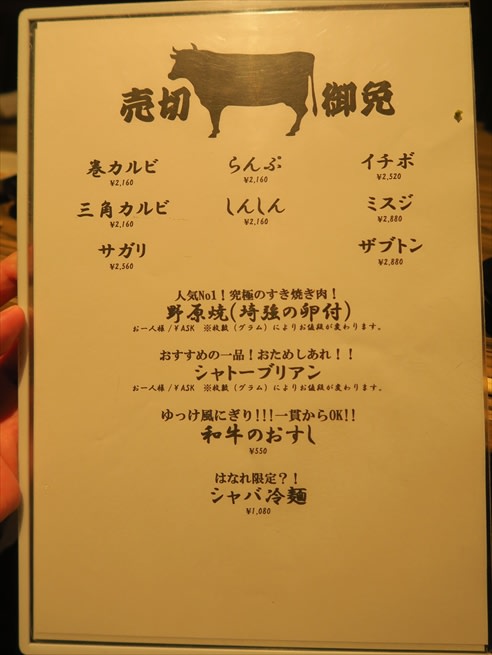 売切 御免
巻カルビ らんぷ イチボ
¥2,160 ¥2,160 ¥2,520
三角カルビ しんしん ミスジ
¥2,160 ¥2,160 ¥2,880
サガリ ザブトン
¥2,560 ¥2,880
人気No1！究極のすき焼き肉！
野原焼(埼強の卵付)
お一人様/¥ASK ※枚数（グラム）によりお値段が変わります。
おすすめの一品！おためしあれ！！
シャトーブリアン
お一人様/¥ASK ※枚数（グラム）によりお値段が変わります。
ゆっけ風にぎり!!!一貫からOK!!
和牛のおすし
¥550
はなれ限定？！
シャバ冷麺
¥1,080